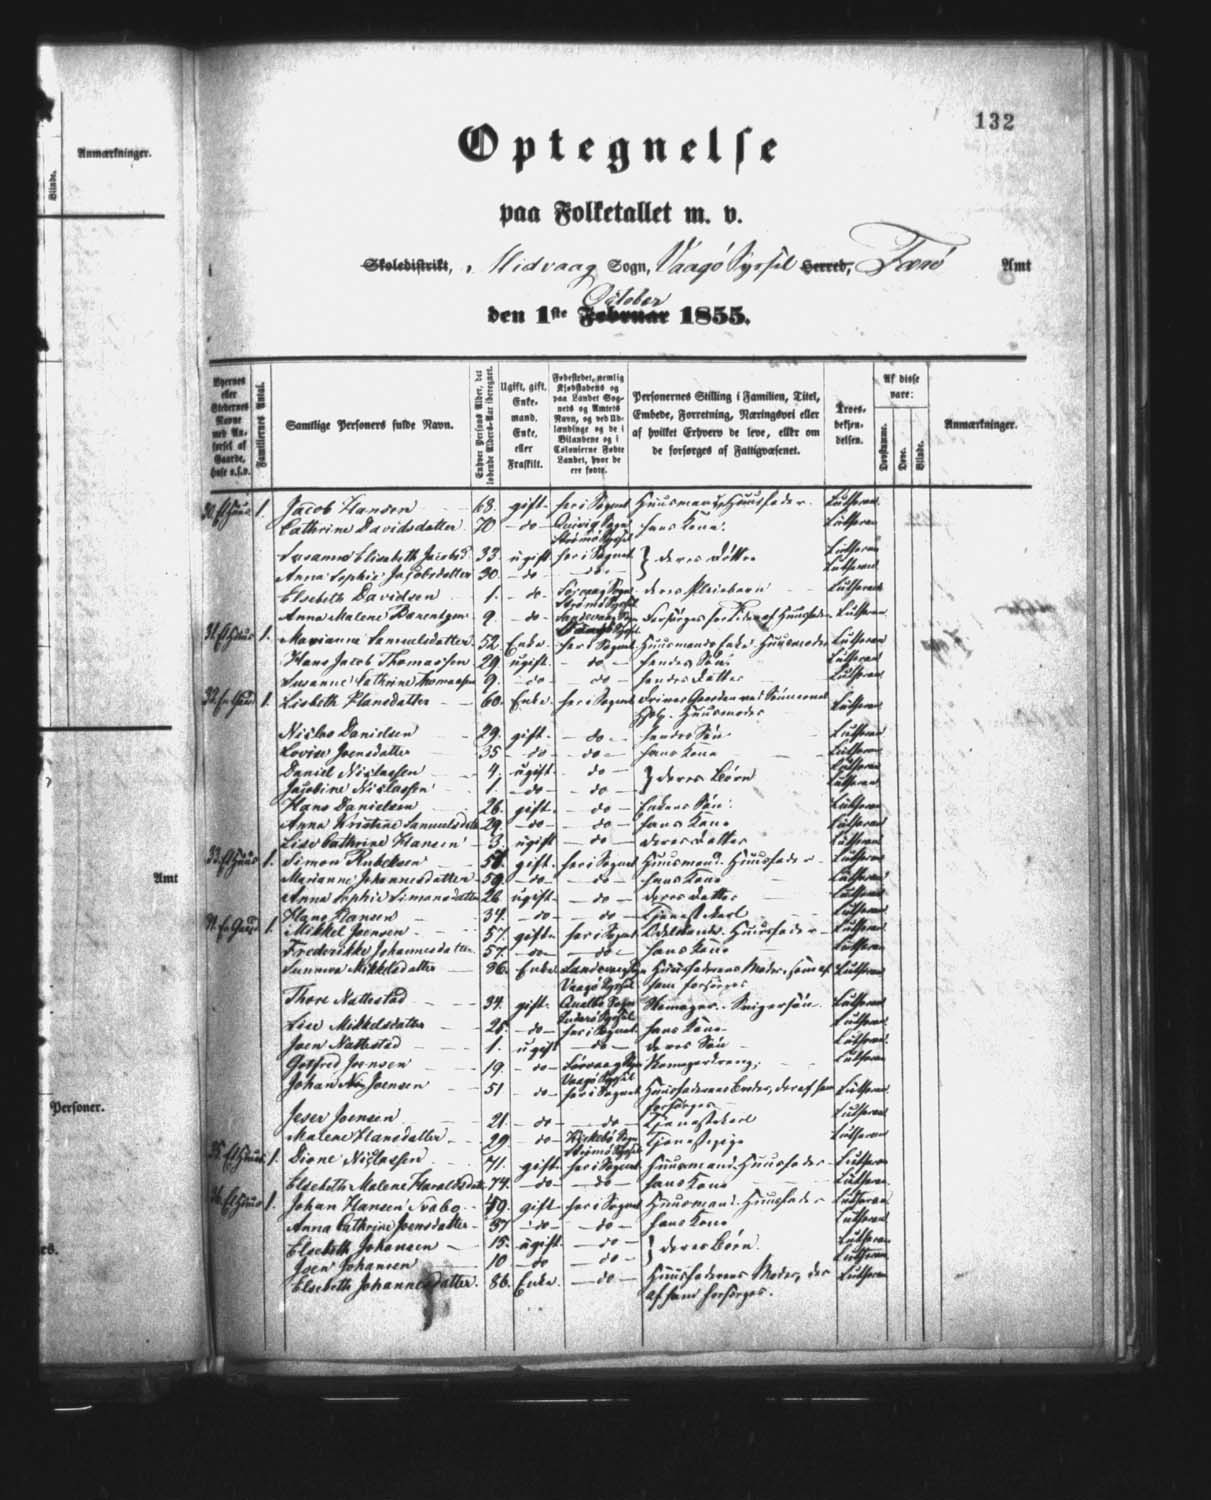 132
Anmærkninger.
Blinde.
Amt
Personer.
Optegnelse
paa Folketallet m. v.
Skoledistrikt, Midvaag Sogn, Vaagö Syssel Herred, Færö Amt
October
den 1ste Februar 1855.
Byernes eller Stedernes Navne med Anførsel af Gaarde, Huse o.s.v.
Familiernes Antal.
Samtlige Personers fulde Navn.
Enhver Persons Alder, det løbende Alders-Aar iberegnet.
Ugift, gift, Enkemand, Enke, eller Fraskilt.
Fødestedet, nemlig Kjøbstadens og paa Landet Sognets og Amtets Navn, og ved Udlændinge og de i Bilandene og i Colonierne Fødte Landet, hvor de ere fødte.
Personernes Stilling i Familien, Titel, Embede, Forretning, Næringsvei eller af hvilket Erhverv de leve, eller om de forsørges af Fattigvæsenet.
Troesbekjendelsen.
Af disse vare:
Døvstumme.
Døve.
Blinde.
Anmærkninger.
30. Et Huus 1. Jacob Hansen 68. gift her i Sognet Huusmand, Huusfader Lutheran
Cathrine Davidsdatter 70 do Qvivig Sogn Strömö Syssel hans Kone Lutheran
Susanna Elisabeth Jacobsd. 33 ugift her i Sognet } deres Döttre Lutheran
Anna Sophie Jacobsdatter 30 do do Lutheran
Elsebeth Davidsen 1. do Strömö Syssel deres Pleiebarn Lutheran
Anna Malene Barentsen 9 do Sandevaag Sogn Vaagö Syssel Lutheran
31. Et Huus 1. Marianne Samuelsdatter 52 Enke her i Sognet Huusmands Enke, Huusmoder Lutheran
Hans Jacob Thomassen 29 ugift do hendes Sön Lutheran
Susanne Cathrine Thomassen 9 do do hendes Datter Lutheran
32. En Gaard 1. Lisbeth Hansdatter 60. Enke her i Sognet driver Gaarden ved Sönnernes Hjelp. Huusmoder Lutheran
Niclas Danielsen 29. gift do hendes Sön Lutheran
Lovise Joensdatter 35 do do hans Kone Lutheran
Daniel Niclassen 4. ugift do } deres Börn Lutheran
Jacobine Niclassen 1. do do Lutheran
Hans Danielsen 26. gift do Enkens Sön Lutheran
Anna Kristine Samuelsdatt. 29. do do hans Kone Lutheran
Lise Cathrine Hansen 3. ugift do deres Datter Lutheran
33. Et Huus 1. Simon Rubeksen gift her i Sognet Huusmand, Huusfader Lutheran
Marianne Johannesdatter 59. do do hans Kone Lutheran
Anna Sophie Simonsdatter 26 ugift do deres Datter Lutheran
Hans Hansen 34. do do Tjenestekarl Lutheran
34. En Gaard 1. Mikkel Joensen 57. gift her i Sognet Odelsbonde, Huusfader Lutheran
Frederikke Johannesdatter 57. do do hans Kone Lutheran
Sunneva Mikkelsdatter 86. Enke Sandevaag Sogn Vaagö Syssel Huusfaderens Moder, som af ham forsörges Lutheran
Thore Nattestad 34. gift Qualbö Sogn Suderö Syssel Skomager. Svigersön Lutheran
Lise Mikkelsdatter 25. do her i Sognet hans Kone Lutheran
Joen Nattestad 1. ugift do deres Sön Lutheran
Gotfred Joensen 19. do Sörvaag Sogn Vaagö Syssel Skomagerdreng Lutheran
Johan Joensen 51 do her i Sognet Huusfaderens Broder, der af ham forsörges Lutheran
Joensen 21. do do Tjenestekarl Lutheran
Malene Hansdatter 29 do Kirkebö Sogn Strömö Syssel Tjenestepige Lutheran
35. Et Huus 1. Dione Niclassen 71. gift her i Sognet Huusmand, Huusfader Lutheran
Elsebeth Malene Haraldsdatt. 74. do do hans Kone Lutheran
36. Et Huus 1. Johan Hansen Svabo 49. gift her i Sognet Huusmand, Huusfader Lutheran
Anna Cathrine Joensdatter 37 do do hans Kone Lutheran
Elsebeth Johansen 15. ugift do } deres Börn. Lutheran
Joen Johansen 10 do do Lutheran
Elsebeth Johannesdatter 86. Enke do Huusfaderens Moder, der af ham forsörges. Lutheran